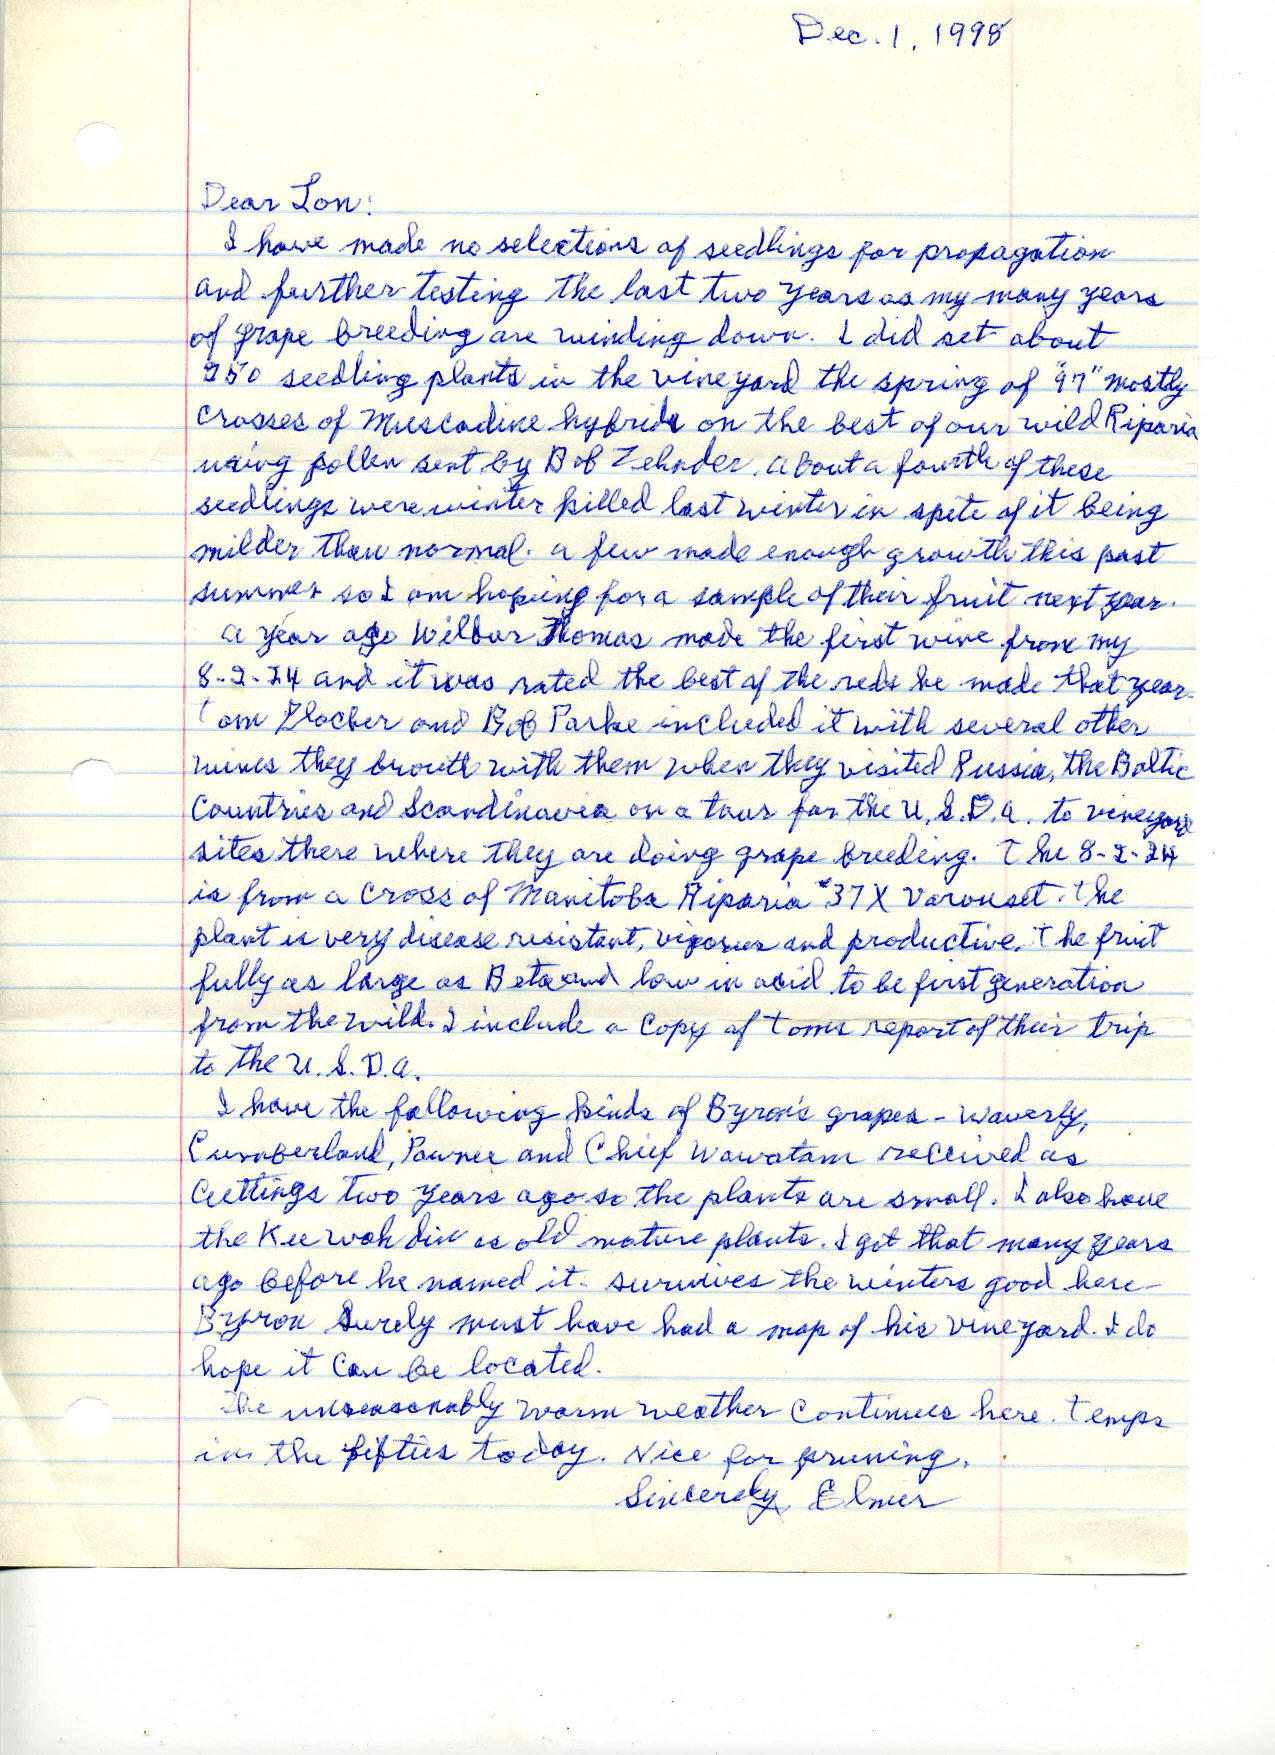 Dec. 1, 1998
Dear Lon:
I have made no selections of seedlings for propagation
and further testing the last two years as my many years
of grape breeding are winding down. I did set about
250 seedling plants in the vineyard the spring of "97" mostly
crosses of Muscadine hybrids on the best of our wild Riparia
using pollen sent by Bob Zehnder. About a fourth of these
seedlings were winter killed last winter in spite of it being
milder than normal. A few made enough growth this past
summer so I am hoping for a sample of their fruit next year.
A year ago Wilbur Thomas made the first wine from my
8-2-24 and it was rated the best of the reds he made that year.
Tom Plocher and Bob Parke included it with several other
wines they brouth with them when they visited Russia, the Baltic
Countries and Scandinavia on a tour for the U.S.D.A. to vineyard
sites there where they are doing grape breeding. The 8-2-24
is from a cross of Manitoba Riparia #37 X Varouset. The
plant is very disease resistant, vigorus and productive. The fruit
fully as large as Beta and low in acid to be first generation
from the wild. I include a copy of Toms report of their trip
to the U.S.D.A.
I have the following kinds of Byron's grapes - Waverly,
Cumberland, Pawnee and Chief Wawatam received as
cuttings two years ago so the plants are small. I also have
the Kee wah din as old mature plants. I got that many years
ago before he named it. survives the winters good here -
Byron surely must have had a map of his vineyard. I do
hope it can be located.
The unseasonably warm weather continues here. Temps
in the fifties today. Nice for pruning.
Sincerely, Elmer